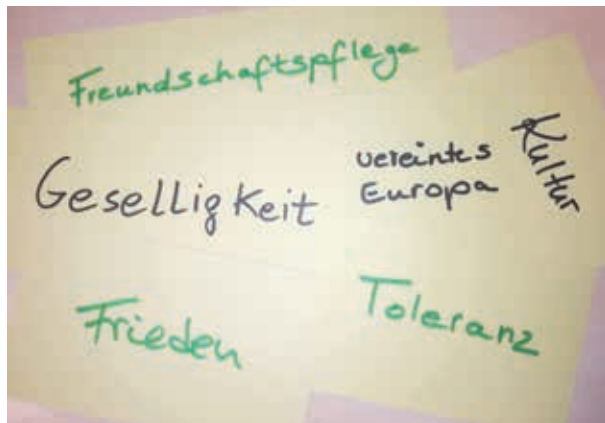 Freundschaftspflege
Geselligkeit
vereintes
Europa
Kultur
Frieden
Toleranz